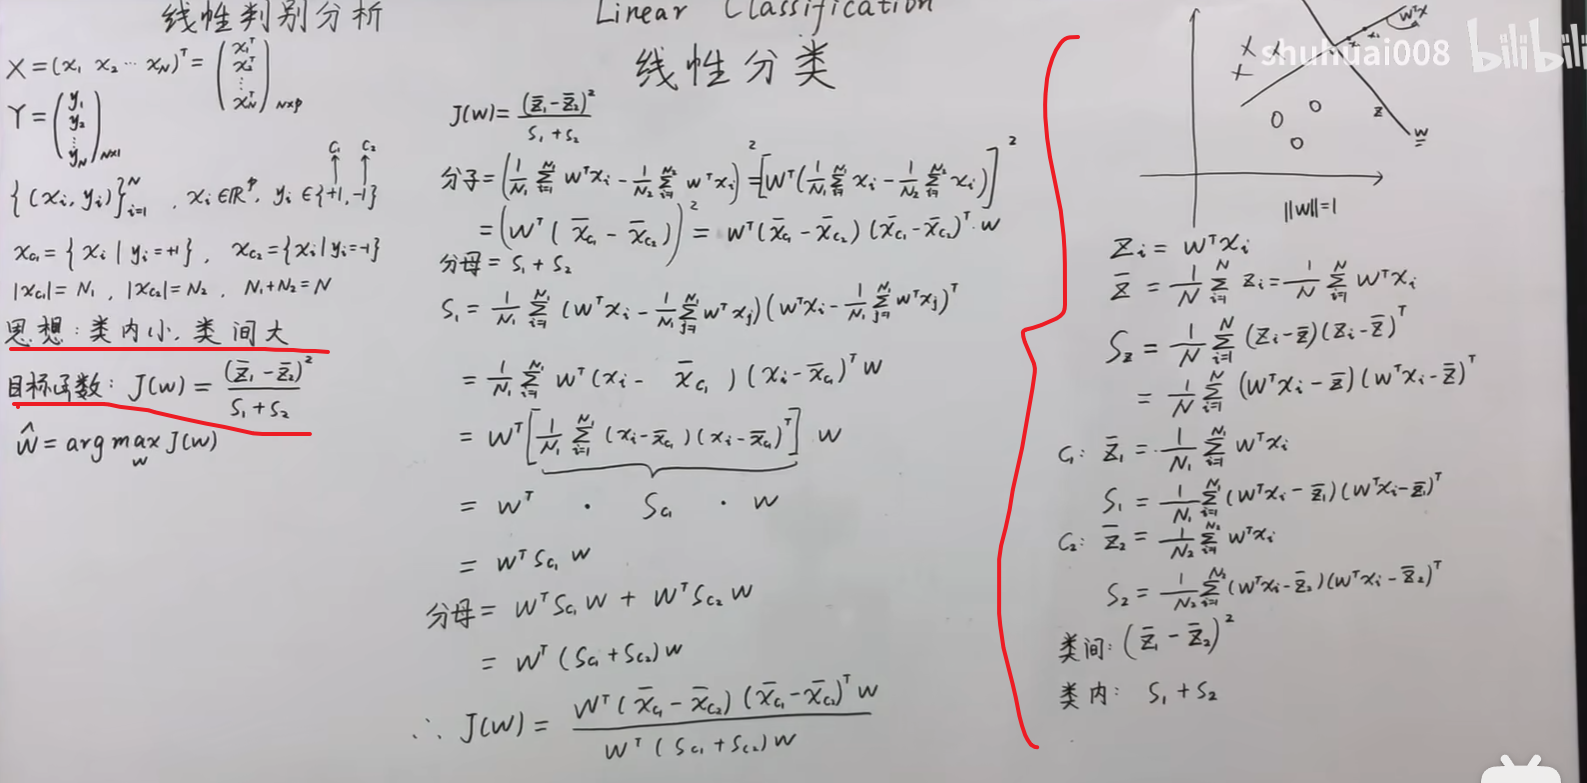 线性判别分析
X = (x₁ x₂ ⋯ x_N)ᵀ = (x₁ᵀ x₂ᵀ ⋮ x_Nᵀ)_{N×p}
Y = (y₁ y₂ ⋮ y_N)_{N×1}
C₁ C₂
{(xᵢ, yᵢ)}ᵢ₌₁ᴺ , xᵢ∈ℝᵖ, yᵢ∈{+1, -1}
x_{C₁} = {xᵢ | yᵢ=+1}, x_{C₂} = {xᵢ | yᵢ=-1}
|x_{C₁}| = N₁ , |x_{C₂}| = N₂ , N₁+N₂ = N
思想: 类内小, 类间大
目标函数: J(w) = (z̄₁ - z̄₂)² / (S₁ + S₂)
ŵ = arg max_w J(w)
Linear Classification
线性分类
J(w) = (z̄₁ - z̄₂)² / (S₁ + S₂)
分子 = (1/N₁ ∑ᵢ₌₁^{N₁} wᵀxᵢ - 1/N₂ ∑ᵢ₌₁^{N₂} wᵀxᵢ)² = [wᵀ(1/N₁ ∑ᵢ₌₁^{N₁} xᵢ - 1/N₂ ∑ᵢ₌₁^{N₂} xᵢ)]²
= (wᵀ(x̄_{C₁} - x̄_{C₂}))² = wᵀ(x̄_{C₁} - x̄_{C₂})(x̄_{C₁} - x̄_{C₂})ᵀ·w
分母 = S₁ + S₂
S₁ = 1/N₁ ∑ᵢ₌₁^{N₁} (wᵀxᵢ - 1/N₁ ∑ⱼ₌₁^{N₁} wᵀxⱼ)(wᵀxᵢ - 1/N₁ ∑ⱼ₌₁^{N₁} wᵀxⱼ)ᵀ
= 1/N₁ ∑ᵢ₌₁^{N₁} wᵀ(xᵢ - x̄_{C₁})(xᵢ - x̄_{C₁})ᵀ w
= wᵀ[1/N₁ ∑ᵢ₌₁^{N₁} (xᵢ - x̄_{C₁})(xᵢ - x̄_{C₁})ᵀ] w
= wᵀ · S_{C₁} · w
= wᵀ S_{C₁} w
分母 = wᵀS_{C₁}w + wᵀS_{C₂}w
= wᵀ(S_{C₁} + S_{C₂})w
∴ J(w) = wᵀ(x̄_{C₁} - x̄_{C₂})(x̄_{C₁} - x̄_{C₂})ᵀw / wᵀ(S_{C₁} + S_{C₂})w
wᵀx
shuhuai008 bilibili
z
w
‖w‖=1
zᵢ = wᵀxᵢ
z̄ = 1/N ∑ᵢ₌₁ᴺ zᵢ = 1/N ∑ᵢ₌₁ᴺ wᵀxᵢ
S_z = 1/N ∑ᵢ₌₁ᴺ (zᵢ - z̄)(zᵢ - z̄)ᵀ
= 1/N ∑ᵢ₌₁ᴺ (wᵀxᵢ - z̄)(wᵀxᵢ - z̄)ᵀ
C₁: z̄₁ = 1/N₁ ∑ᵢ₌₁^{N₁} wᵀxᵢ
S₁ = 1/N₁ ∑ᵢ₌₁^{N₁} (wᵀxᵢ - z̄₁)(wᵀxᵢ - z̄₁)ᵀ
C₂: z̄₂ = 1/N₂ ∑ᵢ₌₁^{N₂} wᵀxᵢ
S₂ = 1/N₂ ∑ᵢ₌₁^{N₂} (wᵀxᵢ - z̄₂)(wᵀxᵢ - z̄₂)ᵀ
类间: (z̄₁ - z̄₂)²
类内: S₁ + S₂